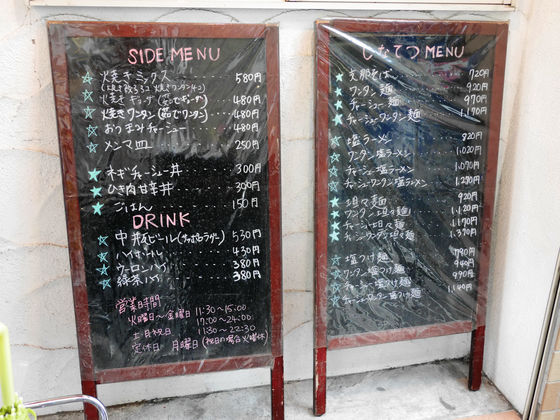 SIDE MENU
☆ 焼きミックス 580円
(焼き餃子3コ 焼きワンタン4コ)
☆ 焼きギョーザ (茹でギョーザ) 480円
☆ 焼きワンタン (茹でワンタン) 480円
☆ おつまみチャーシュー 480円
☆ メンマ皿 250円
★ ネギチャーシュー丼 300円
★ ひき肉甘辛丼 300円
★ ごはん 150円
DRINK
☆ 中瓶ビール (サッポロラガー) 530円
☆ ハイボール 430円
☆ ウーロンハイ 380円
☆ 緑茶ハイ 380円
営業時間
火曜日〜金曜日 11:30〜15:00
17:00〜24:00
土日祝日 11:30〜22:30
定休日 月曜日 (祝日の場合火曜休)
しなてつ MENU
★ 支那そば 720円
★ ワンタン麺 920円
★ チャーシュー麺 970円
★ チャーシューワンタン麺 1,170円
☆ 塩ラーメン 820円
☆ ワンタン塩ラーメン 1,020円
☆ チャーシュー塩ラーメン 1,070円
☆ チャーシューワンタン塩ラーメン 1,270円
★ 坦々麺 920円
★ ワンタン坦々麺 1,120円
★ チャーシュー坦々麺 1,170円
★ チャーシューワンタン坦々麺 1,370円
☆ 塩つけ麺 790円
☆ ワンタン塩つけ麺 940円
☆ チャーシュー塩つけ麺 990円
☆ チャーシューワンタン塩つけ麺 1,140円